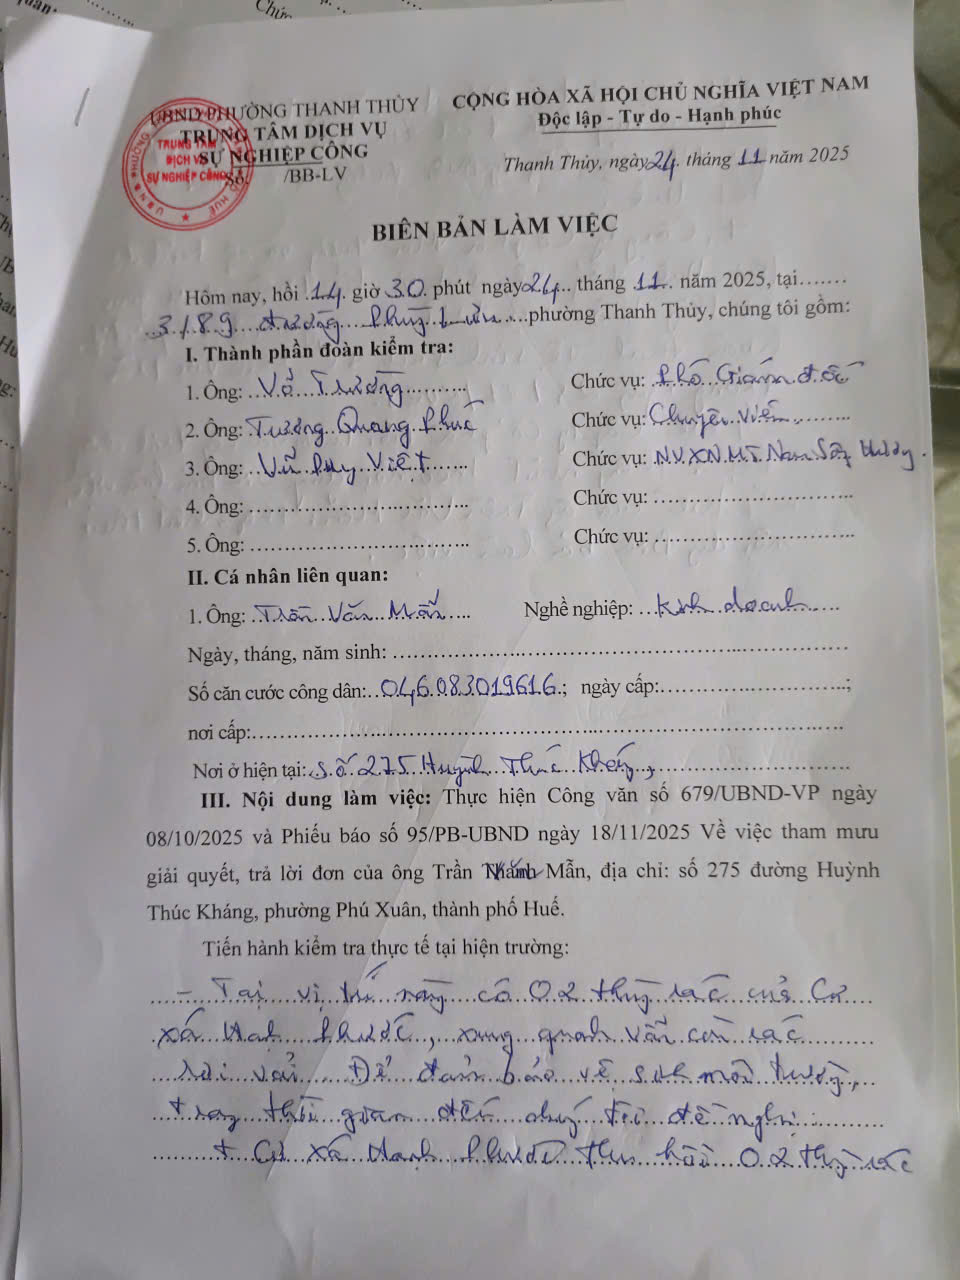 UBND PHƯỜNG THANH THỦY
TRUNG TÂM DỊCH VỤ
SỰ NGHIỆP CÔNG
Số. /BB-LV
TRUNG TÂM
DỊCH VỤ
SỰ NGHIỆP CÔNG
CỘNG HÒA XÃ HỘI CHỦ NGHĨA VIỆT NAM
Độc lập - Tự do - Hạnh phúc
Thanh Thủy, ngày 24 tháng 11 năm 2025
BIÊN BẢN LÀM VIỆC
Hôm nay, hồi 14 giờ 30 phút ngày 24 tháng 11 năm 2025, tại.......
3/189 đường Phùng Lưu phường Thanh Thủy, chúng tôi gồm:
I. Thành phần đoàn kiểm tra:
1. Ông: Võ Trường Chức vụ: Phó Giám đốc
2. Ông: Trương Quang Phúc Chức vụ: Chuyên viên
3. Ông: Vũ Duy Việt Chức vụ: NV.XN.MT. Nam Sông Hương
4. Ông: ............ Chức vụ: ............
5. Ông: ............ Chức vụ: ............
II. Cá nhân liên quan:
1. Ông: Trần Văn Mẫn Nghề nghiệp: Kinh doanh
Ngày, tháng, năm sinh: ............
Số căn cước công dân: 046083019616; ngày cấp:............;
nơi cấp:............
Nơi ở hiện tại: Số 275 Huỳnh Thúc Kháng,
III. Nội dung làm việc: Thực hiện Công văn số 679/UBND-VP ngày
08/10/2025 và Phiếu báo số 95/PB-UBND ngày 18/11/2025 Về việc tham mưu
giải quyết, trả lời đơn của ông Trần Mẫn, địa chỉ: số 275 đường Huỳnh
Thúc Kháng, phường Phú Xuân, thành phố Huế.
Tiến hành kiểm tra thực tế tại hiện trường:
- Tại vị trí này có 02 thùng rác của Cư
xá Hạnh Phước, xung quanh vẫn còn rác
rơi vải. Để đảm bảo vệ sinh môi trường,
trong thời gian đến chúng tôi đề nghị:
+ Cư xá Hạnh Phước thu hồi 02 thùng rác